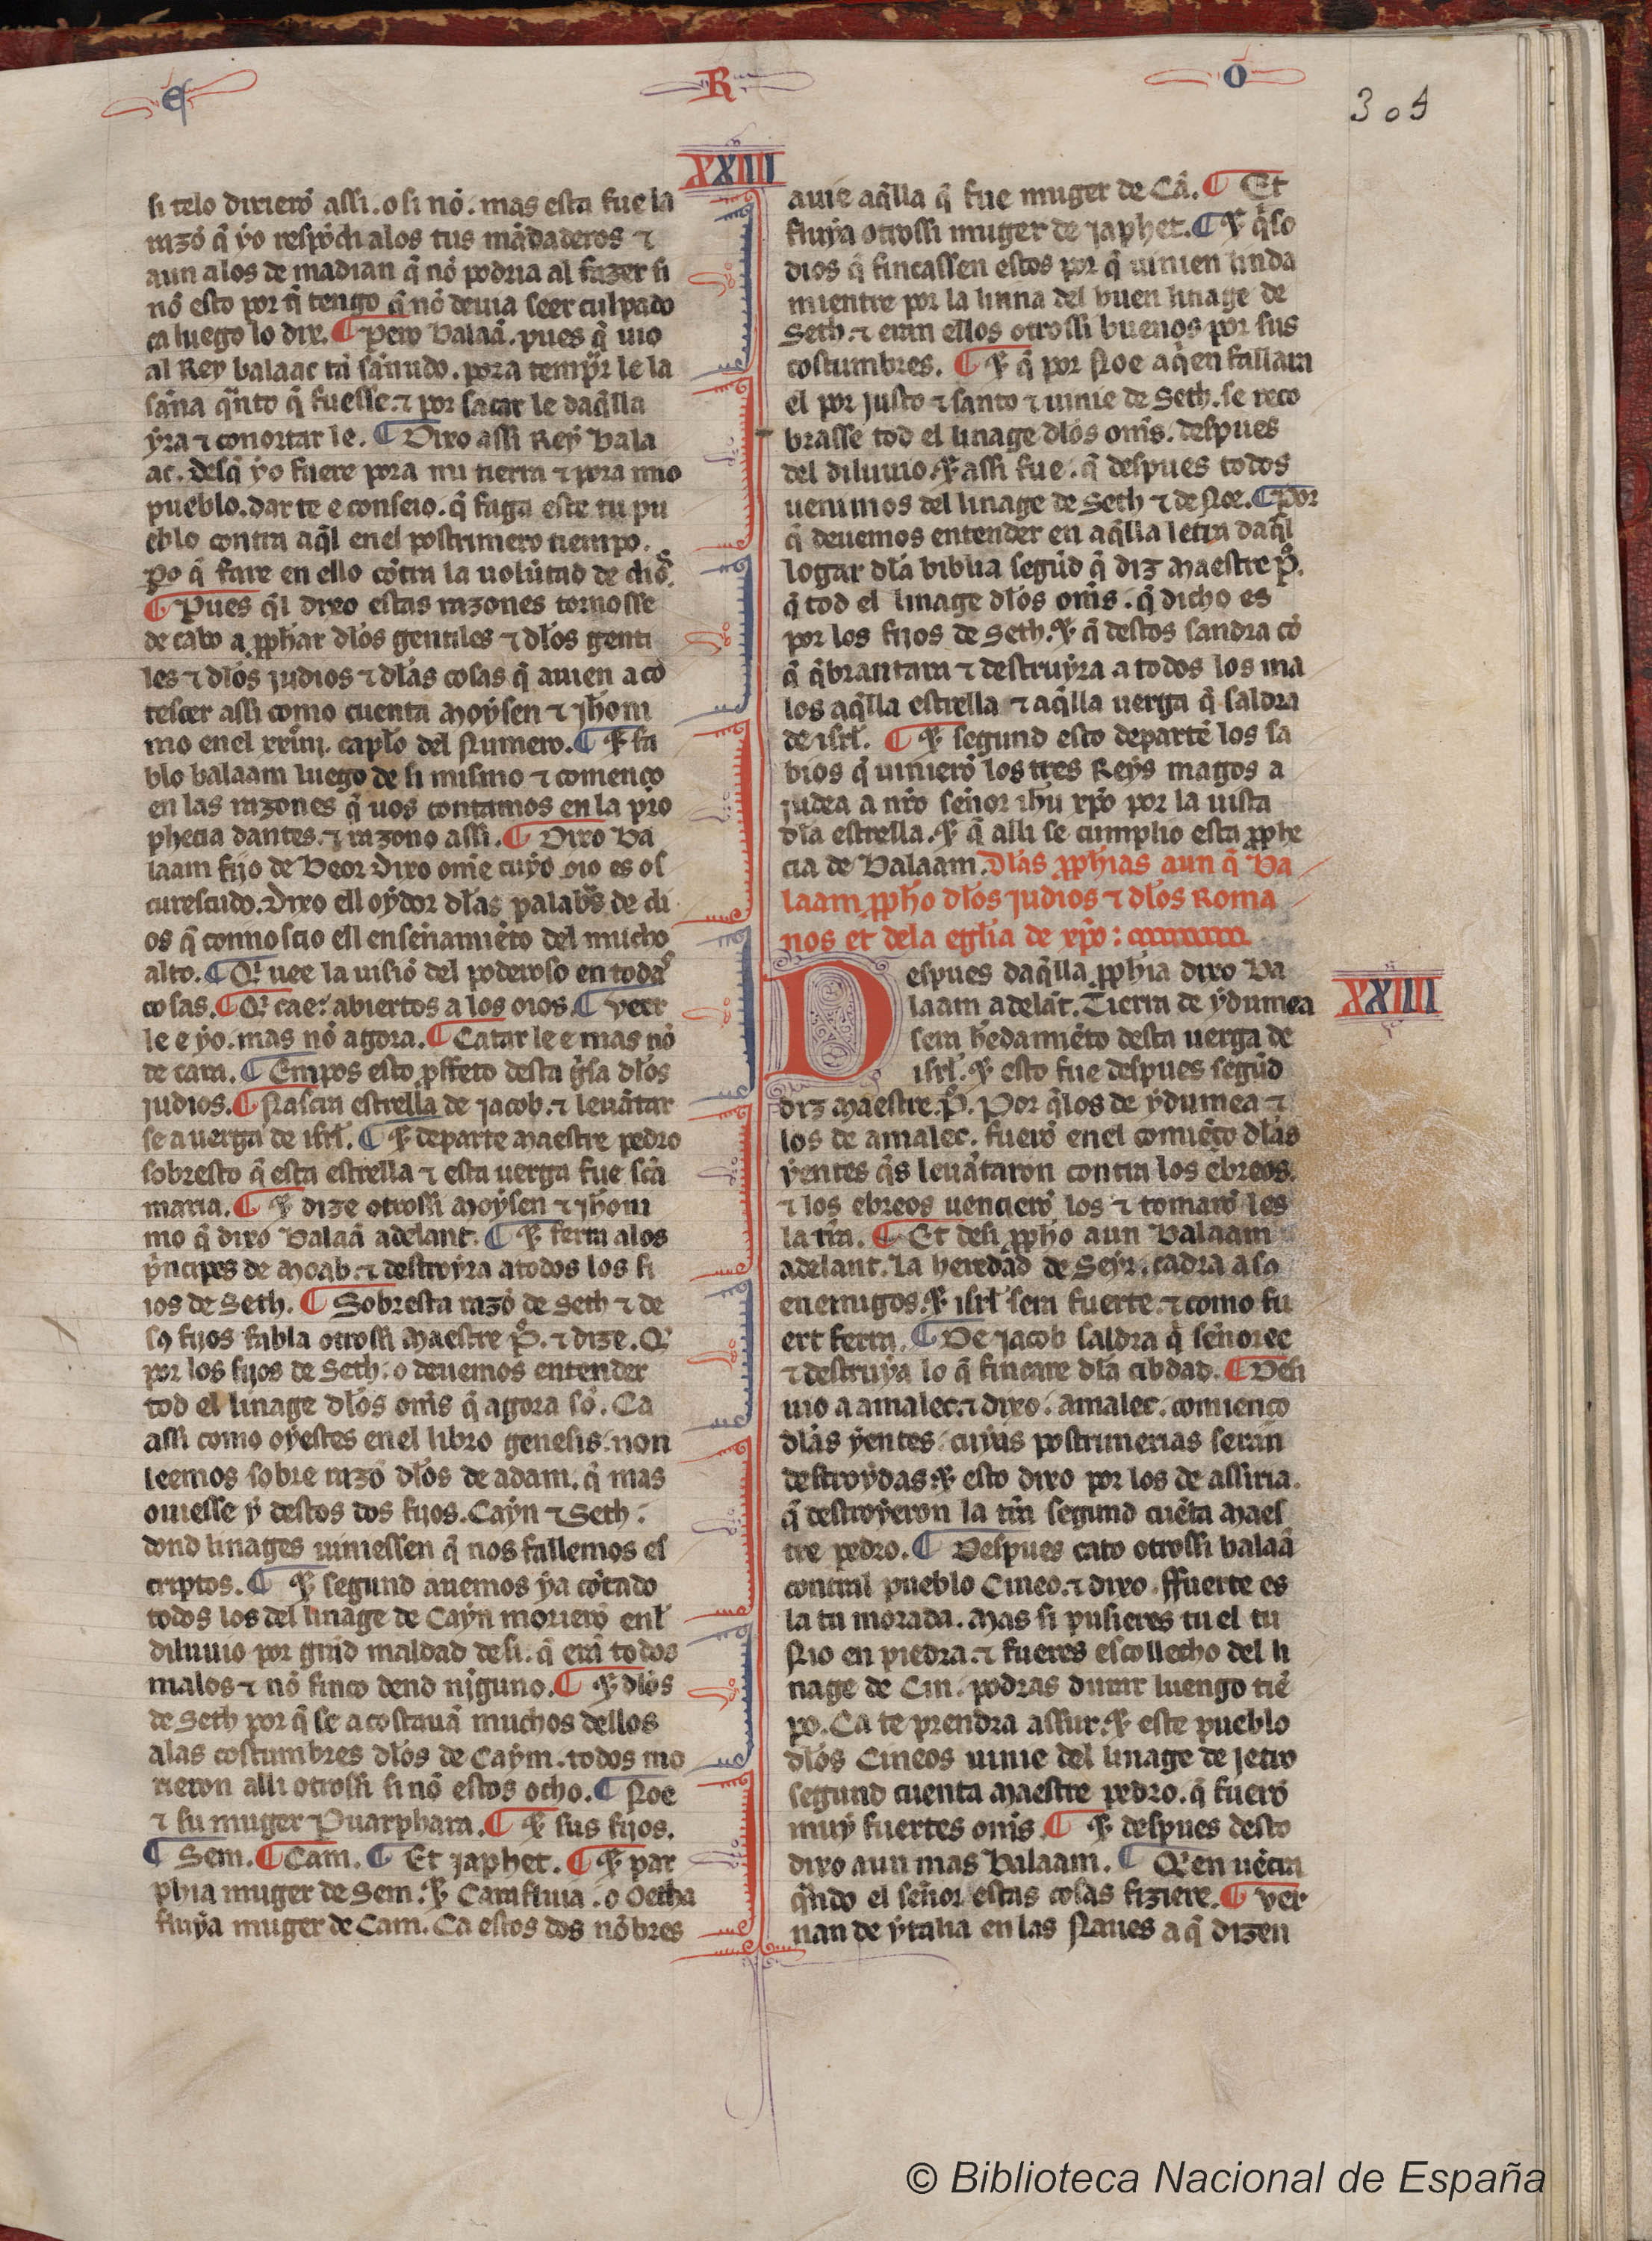 E R O
305
XXIIII
si telo dixierõ assi. o si nõ. mas esta fue la
razõ q̃ yo respõdi alos tus mãdaderos ⁊
aun alos de madian q̃ nõ podria al fazer si
nõ esto por q̃ tengo q̃ nõ deuia seer culpado
ca luego lo dix. ¶ Pero balaã. pues q̃ uio
al Rey balaac tã sãnudo. pora tempr̃ le la
sãna qñto q̃ fuesse. ⁊ por sacar le daq̃lla
yra ⁊ conortar le. ¶ Dixo assi Rey Bala
ac. desq̃ yo fuere pora mi tierra ⁊ pora mio
pueblo. dar te e conseio. q̃ faga este tu pu
eblo contra aq̃l enel postrimero tiempo.
po q̃ fare en ello cõtra la uolũtad de dios̃.
¶ Pues q̃l dixo estas razones tornosse
de cabo a ꝓphar dlos gentiles ⁊ dlos genti
les ⁊ dlos judios ⁊ dlas cosas q̃ auien a cõ
tescer assi como cuenta Moysen ⁊ Jhoni
mo enel xxiiij. caplo del Numero. ¶ ⁊ fa
blo balaam luego de si mismo ⁊ començo
en las razones q̃ uos contamos en la pro
phecia dantes. ⁊ razono assi. ¶ Dixo Ba
laam fijo de Beor. Dixo om̃e cuyo oio es os
curescudo. Dixo ell oydor dlas palabr̃s de di
os q̃ connoscio ell enseñamiẽto del mucho
alto. ¶ Q̃ uee la uisiõ del poderoso en todas
cosas. ¶ Q̃ cae: abiertos a los oios. ¶ Veer
le e yo. mas nõ agora. ¶ Catar le e mas nõ
de cerca. ¶ Empos esto ꝓffeto desta gĩsa dlos
judios. ¶ Nascra estrella de jacob. ⁊ leuãtar
se a uerga de isrl. ¶ ⁊ departe Maestre pedro
sobresto q̃ esta estrella ⁊ esta uerga fue scã
maria. ¶ ⁊ dize otrossi Moysen ⁊ Jhoni
mo q̃ dixo Balaã adelant. ¶ ⁊ ferra alos
p̃ncipes de Moab. ⁊ destroyra atodos los fi
ios de Seth. ¶ Sobresta razõ de Seth ⁊ de
sꝯ fijos fabla otrossi Maestre P̃. ⁊ dize. Q̃
por los fijos de Seth. o deuemos entender
tod el linage dlos om̃s q̃ agora sõ. Ca
assi como oyestes enel libro genesis. non
leemos sobre razõ dlos de adam. q̃ mas
ouiesse y destos dos fijos. Cayn ⁊ Seth.
dond linages uiniessen q̃ nos fallemos es
criptos. ¶ ⁊ segund auemos ya cõtado
todos los del linage de Cayn morierõ enl
diluuio por grãd maldad desi. q̃ erã todos
malos ⁊ nõ finco dend nĩguno. ¶ ⁊ dlos
de Seth por q̃ se acostauã muchos dellos
alas costumbres dlos de Caym. todos mo
rieron alli otrossi si nõ estos ocho. ¶ Noe
⁊ su muger Puarphara. ¶ ⁊ sus fijos.
¶ Sem. ¶ Cam. ¶ Et japhet. ¶ ⁊ par
phia muger de Sem. ⁊ Cataflua. o Oetha
fluya muger de Cam. Ca estos dos nõbres
auie aq̃lla q̃ fue muger de Cã. ¶ Et
fluya otrossi muger de japhet. ¶ ⁊ q̃so
dios q̃ fincassen estos por q̃ uinien linda
mientre por la linna del buen linage de
Seth. ⁊ eran ellos otrossi buenos por sus
costumbres. ¶ ⁊ q̃ por Noe aq̃en fallara
el por justo ⁊ santo ⁊ uinie de Seth. se reco
brasse tod el linage dlos om̃s. despues
del diluuio. ⁊ assi fue. q̃ despues todos
uenimos del linage de Seth ⁊ de Noe. ¶ Por
q̃ deuemos entender en aq̃lla letra daq̃l
logar dla biblia segũd q̃ diz Maestre P̃.
q̃ tod el linage dlos om̃s. q̃ dicho es
por los fijos de Seth. ⁊ q̃ destos saldra cõ
q̃ q̃brantara ⁊ destruyra a todos los ma
los aq̃lla estrella ⁊ aq̃lla uerga q̃ saldra
de isrl. ¶ ⁊ segund esto departẽ los sa
bios q̃ uinierõ los tres Reys magos a
judea a nr̃o señor ihu xp̃o por la uista
dla estrella. ⁊ q̃ alli se cumplio esta ꝓphe
cia de Balaam. Dlas ꝓphias aun q̃ Ba
laam ꝓpho dlos judios ⁊ dlos Roma
nos et dela eglia de xp̃o:
XXIIII
Despues daq̃lla ꝓphia dixo Ba
laam adelãt. Tierra de ydumea
sera hedamiẽto desta uerga de
isrl. ⁊ esto fue despues segũd
diz Maestre. P̃. Por q̃los de ydumea ⁊
los de amalec. fuerõ enel comiẽço dlas
yentes q̃s leuãtaron contra los ebreos.
⁊ los ebreos uencierõ los ⁊ tomarõ les
la tr̃ra. ¶ Et desi ꝓpho aun Balaam
adelant. La heredad de Seyr. cadra a so
enemigos. ⁊ isrl sera fuerte. ⁊ como fu
ert ferra. ¶ De jacob saldra q̃ señoree
⁊ destruya lo q̃ fincare dla cibdad. ¶ Desi
uio a amalec. ⁊ dixo. amalec. comienço
dlas yentes. cuyas postrimerias seran
destroydas. ⁊ esto dixo por los de assiria.
q̃ destroyeron la tr̃ra segund cuẽta Maes
tre pedro. ¶ Despues cato otrossi balaã
contral pueblo Cineo. ⁊ dixo. ffuerte es
la tu morada. Mas si pusieres tu el tu
Nio en piedra. ⁊ fueres escollecho del li
nage de Cin. podras durar luengo tiẽ
po. Ca te prendra assur. ⁊ este pueblo
dlos Cineos uinie del linage de jetro
segund cuenta Maestre pedro. q̃ fuerõ
muy fuertes om̃s. ¶ ⁊ despues desto
dixo aun mas Balaam. ¶ Q̃en uẽcra
qñdo el señor estas cosas fiziere. ¶ Ver
nan de ytalia en las Naues a q̃ dizen
© Biblioteca Nacional de España